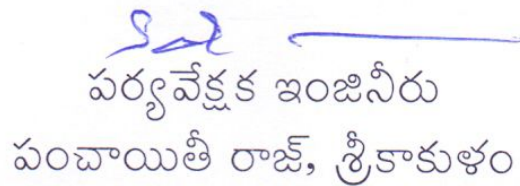 పర్యవేక్షక ఇంజినీరు
పంచాయితీ రాజ్, శ్రీకాకుళం